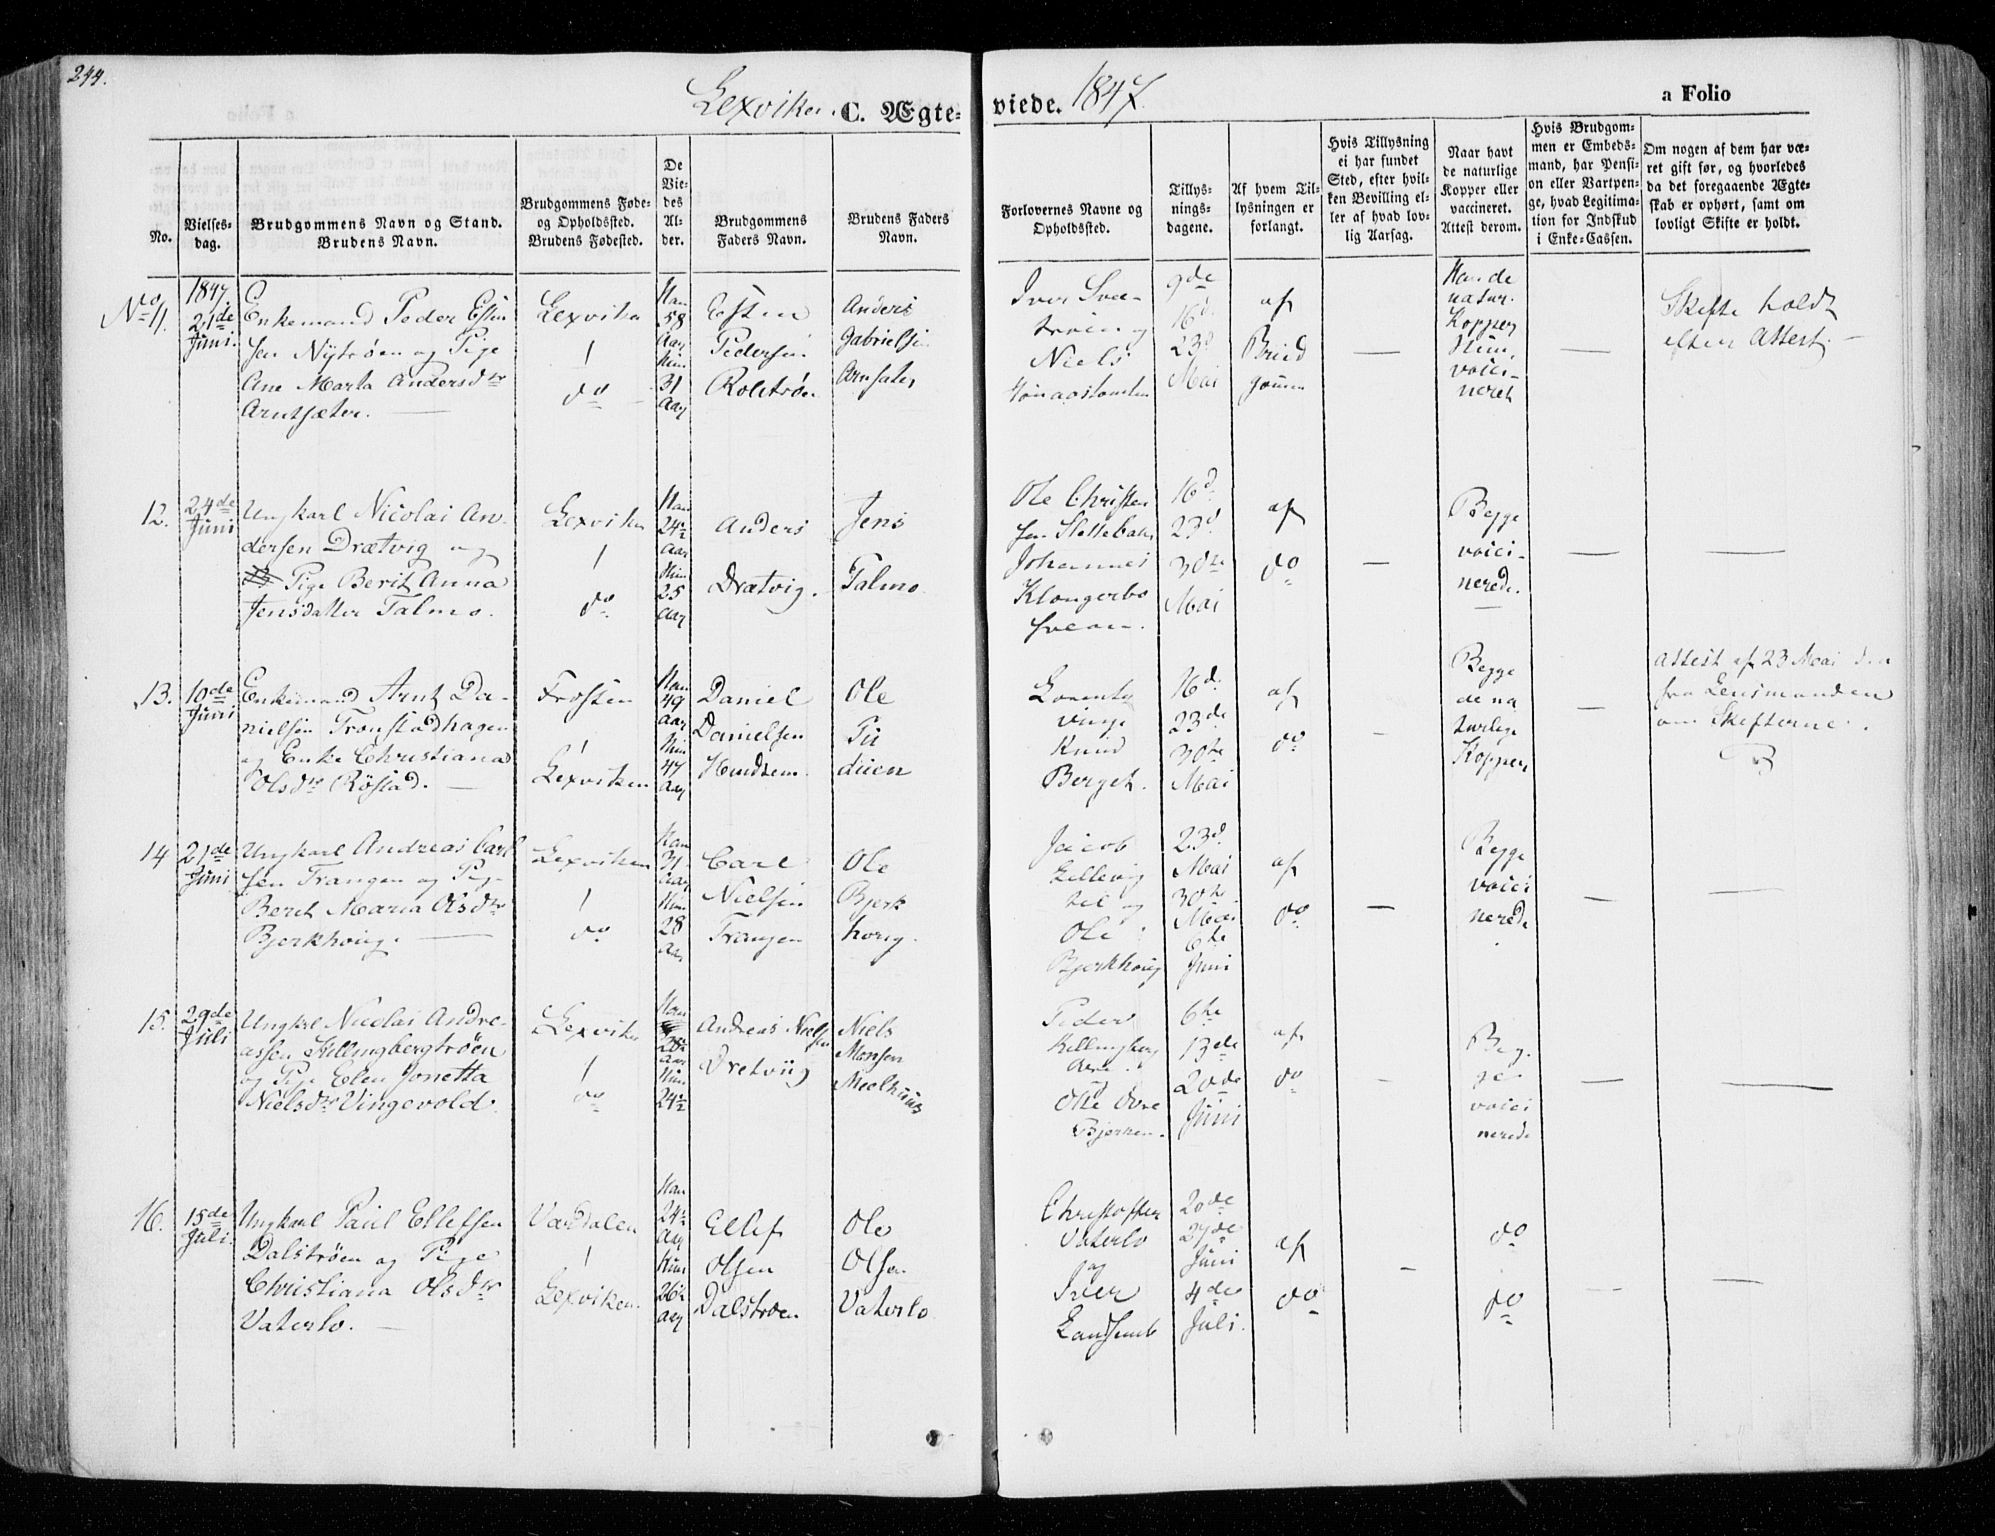 244.
Lexviken. C. Ægte-
viede. 1847.
a Folio
No.
Vielses-
dag.
Brudgommens Navn og Stand.
Brudens Navn.
Brudgommens Føde-
og Opholdssted.
Brudens Fødested.
De
Vie-
des
Al-
der.
Brudgommens
Faders Navn.
Brudens Faders
Navn.
Forlovernes Navne og
Opholdssted.
Tillys-
nings-
dagene.
Af hvem Til-
lysningen er
forlangt.
Hvis Tillysning
ei har fundet
Sted, efter hvil-
ken Bevilling el-
ler af hvad lov-
lig Aarsag.
Naar havt
de naturlige
Kopper eller
vaccineret.
Attest derom.
Hvis Brudgom-
men er Embeds-
mand, har Pensi-
on eller Vartpen-
ge, hvad Legitima-
tion for Indskud
i Enke-Cassen.
Om nogen af dem har væ-
ret gift før, og hvorledes
da det foregaaende Ægte-
skab er ophørt, samt om
lovligt Skifte er holdt.
No 11.
1847
21de
Juni.
Enkemand Peder Esten
sen Nytrøen og Pige
Ane Marta Andersdtr
Arntsæter.
Lexviken
/
do
Han
58
Aar
Hun
31
Aar
Esten
Pedersen
Rolstrøen
Anders
Gabrielsen
Iver Sve-
trøen og
Niels
9de
16d.
23d
Mai
af
Brud
gomm
—
Han de
natur.
Kopper
Hun
vacci-
neret
—
Skifte holdt
efter Attest. —
12.
24de
Juni
Ungkarl Nicolai An-
dersen Drætvig og
Pige Berit Anna
Jensdatter Talmo.
Lexviken
/
do
Han
24½
Aar
Hun
25
Aar
Anders
Drætvig.
Jens
Talmo.
Ole Christen
sen Slettebak
Johannes
Klongerbo
sveen.
16d.
23d
30te
Mai
af
do
—
Begge
vacci-
nerede.
—
—
13.
10de
Juni
Enkemand Arnt Da-
nielsen Tronstadhagen
og Enke Christiana
Olsdtr Røstad. —
Frosten
/
Lexviken
Han
49
Aar
Hun
47
Aar
Daniel
Danielsen
Ole
Lorents
Vinge
Knud
Berget.
16d.
23de
30te
Mai
af
do
—
Begge
de na
turlige
Kopper
—
Attest af 23 Mai
fra Lensmanden
om Skifterne.
14
21de
Juni
Ungkarl Andreas Carl
sen Trangen og Pige
Beret Maria Olsdtr
Bjerkhoug. —
Lexviken
/
do
Han
31
Aar
Hun
28
Aar
Carl
Nielsen
Trangen
Ole
Bjerk
houg.
Jacob
og
Ole
Bjerkhoug
23d
Mai
30te
Mai
6te
Juni
af
do
—
Begge
vacci
nerede
—
—
15.
29de
Juli
Ungkrl Nicolai Andre-
assen Killingbergtrøen
og Pige Elen Jonetta
Nielsdtr Vingevold.
Lexviken
/
do
Han
Aar
Hun
24½
Andreas Nielsen
Dretviig
Niels
Monsen
Meelhuus
Peder
Killingberg
Ole Øvre
Bjerken.
6te
13de
20de
Juni
af
do
—
Beg-
ge
vacci
nerede
—
—
16.
15de
Juli.
Ungkarl Paul Ellefsen
Dalstrøen og Pige
Christiana Olsdtr
Vaterlo. —
Værdalen
/
Lexviken.
Han
24½
Aar
Hun
26½
Aar
Ellef
Olsen
Dalstrøen
Ole
Olsen
Vaterlo
Christoffer
Vaterlo
og
Iver
Landsemb
20de
27de
Juni
4de
Juli.
af
do
—
do
do
—
—